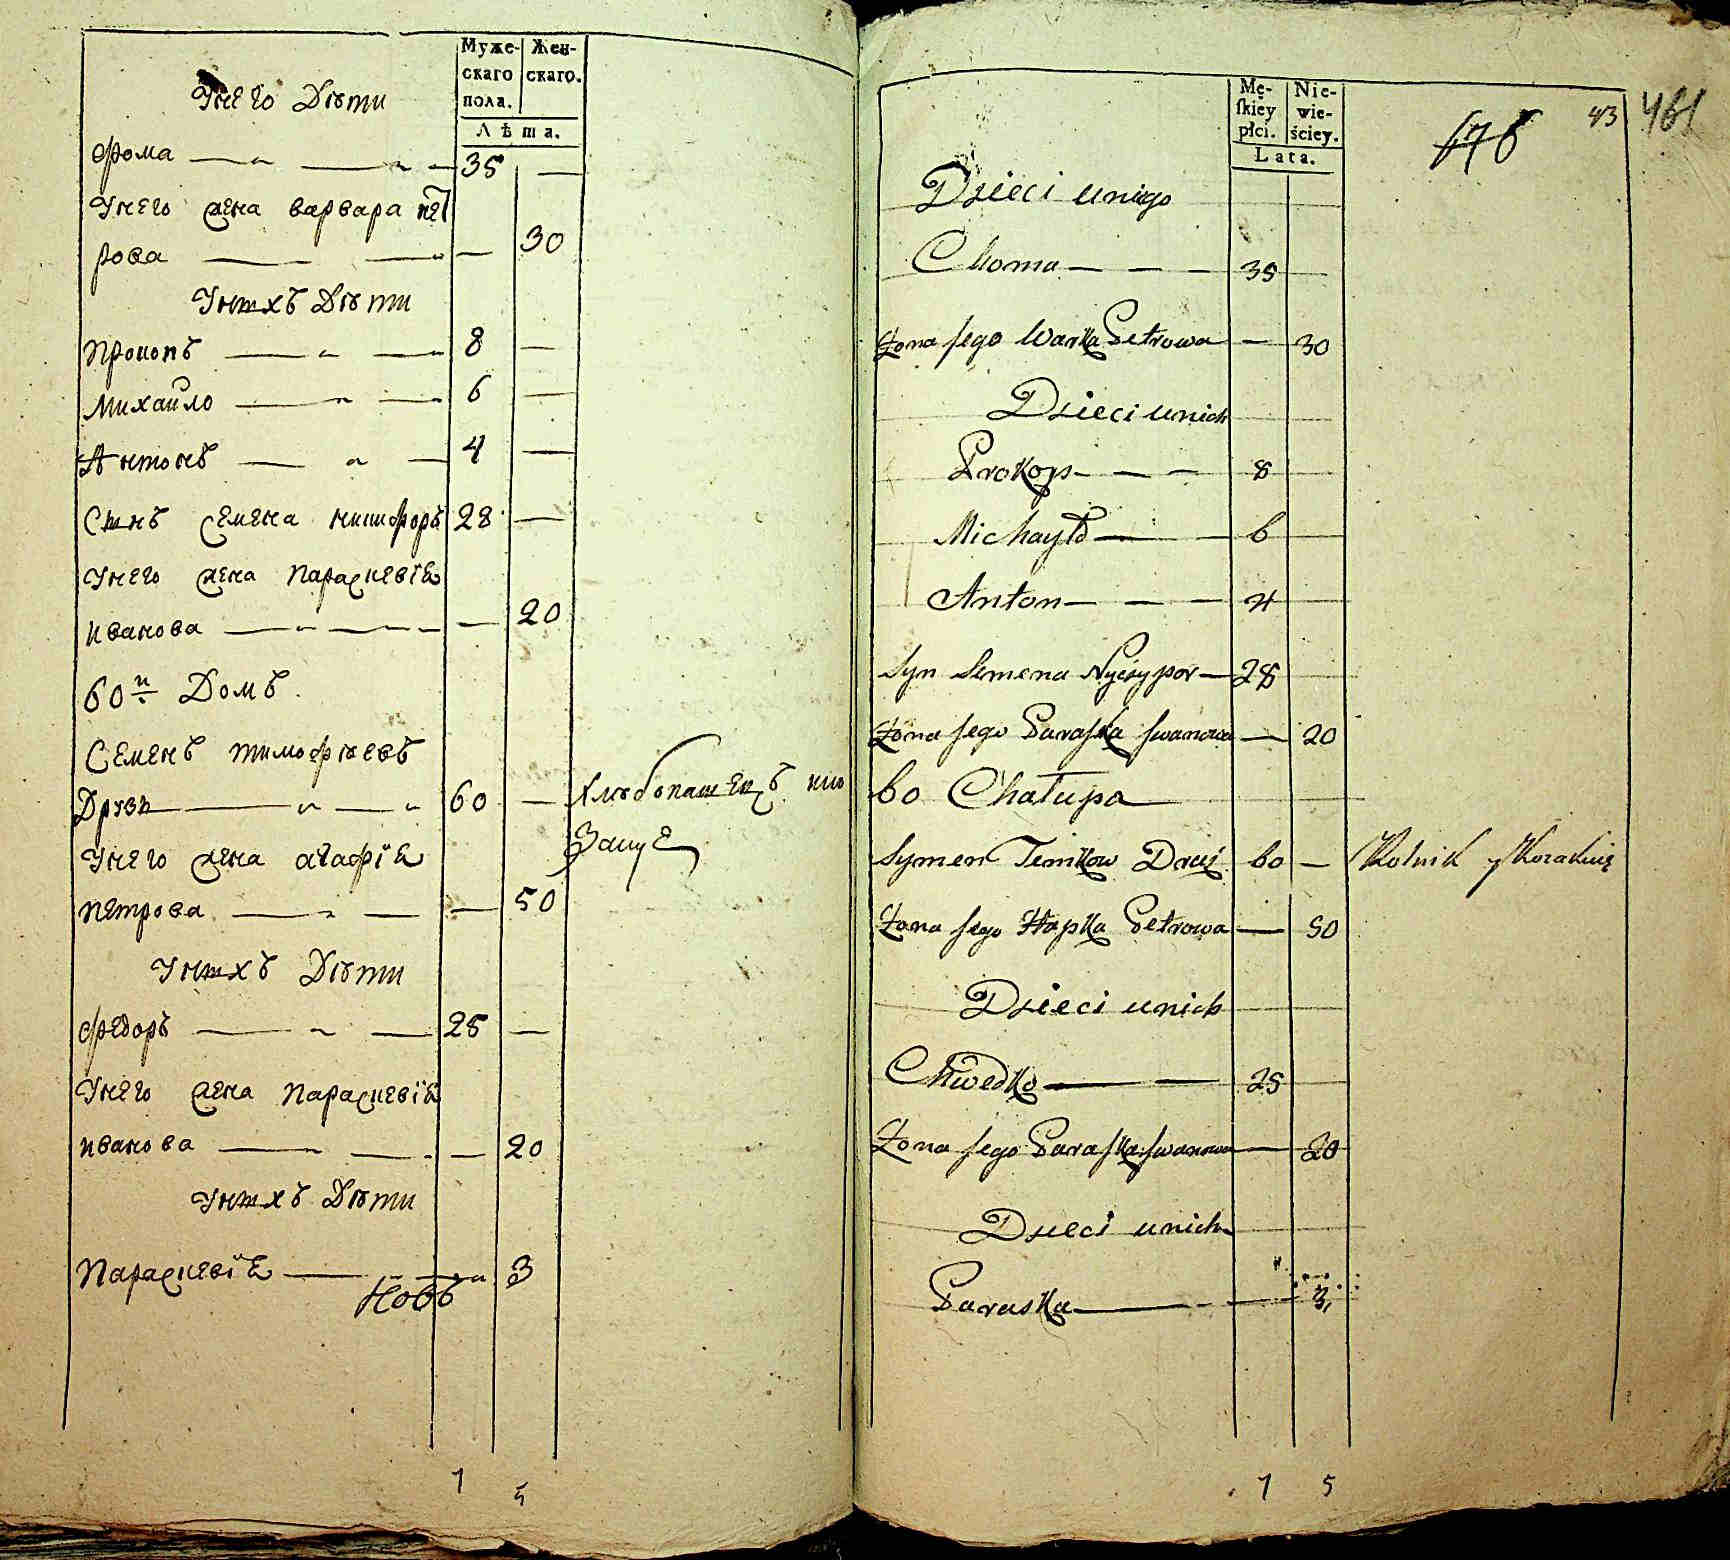 Муже-
скаго
пола.
Жен-
скаго.
Лѣта.
Унего Дѣти
Фома 35
Унего жена варвара пет
рова 30
Унихъ Дѣти
Прокопъ 8
Михайло 6
Антонъ 4
Снъ Семена никифоръ 28
Унего жена Параскевіе
иванова 20
60й Домъ
Семенъ тимофѣевъ
Друзь 60 Хлѣбопашецъ
Унего жена агафіе
петрова 50
Унихъ Дѣти
Федоръ 25
Унего жена Параскевіе
иванова 20
Унихъ Дѣти
Параскевіе 3
7 5
Mę-
ſkiey
płci.
Nie-
wie-
ściey.
Lata.
678
43
461
Dzieci uniego
Choma 35
Żona jego Warka Petrowa 30
Dzieci unich
Prokop 8
Michayło 6
Anton 4
Syn Semena Nyczypor 28
Żona jego Paraſka Iwanowa 20
60 Chałupa
Symen Timkow Druź 60 Rolnik y Kozakuię
Żona jego Hapka Petrowa 50
Dzieci unich
Chwedko 25
Żona jego Paraſka Iwanowa 20
Dzieci unich
Paraska 3
7 5